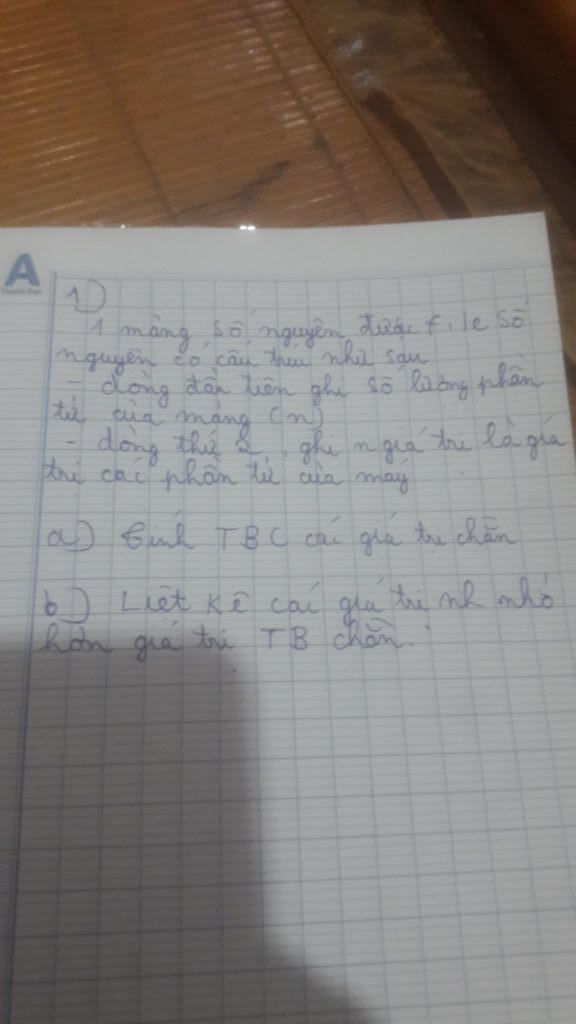 A
1)
1 mảng số nguyên được file số
nguyên có cấu trúc như sau
- dòng đầu tiên ghi số lượng phần
tử của mảng (n)
- dòng thứ 2, ghi n giá trị là giá
trị các phần tử của mảy
a) tính TBC các giá trị chẵn
b) Liệt kê các giá trị nh nhỏ
hơn giá trị TB chẵn.